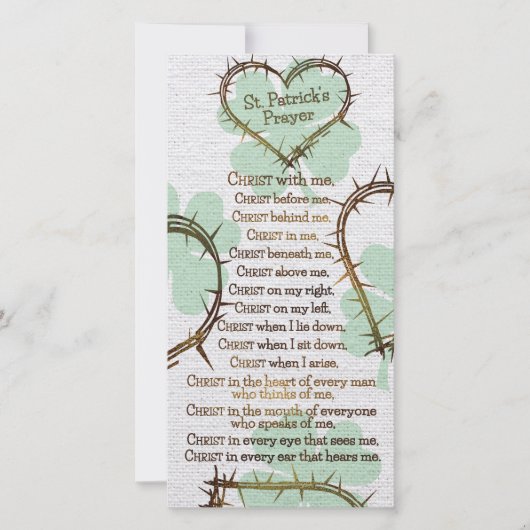 St. Patrick's
Prayer
CHRIST with me,
CHRIST before me,
CHRIST behind me,
CHRIST in me,
CHRIST beneath me,
CHRIST above me,
CHRIST on my right,
CHRIST on my left,
CHRIST when I lie down,
CHRIST when I sit down,
CHRIST when I arise,
CHRIST in the heart of every man
who thinks of me,
CHRIST in the mouth of everyone
who speaks of me,
CHRIST in every eye that sees me,
CHRIST in every ear that hears me.